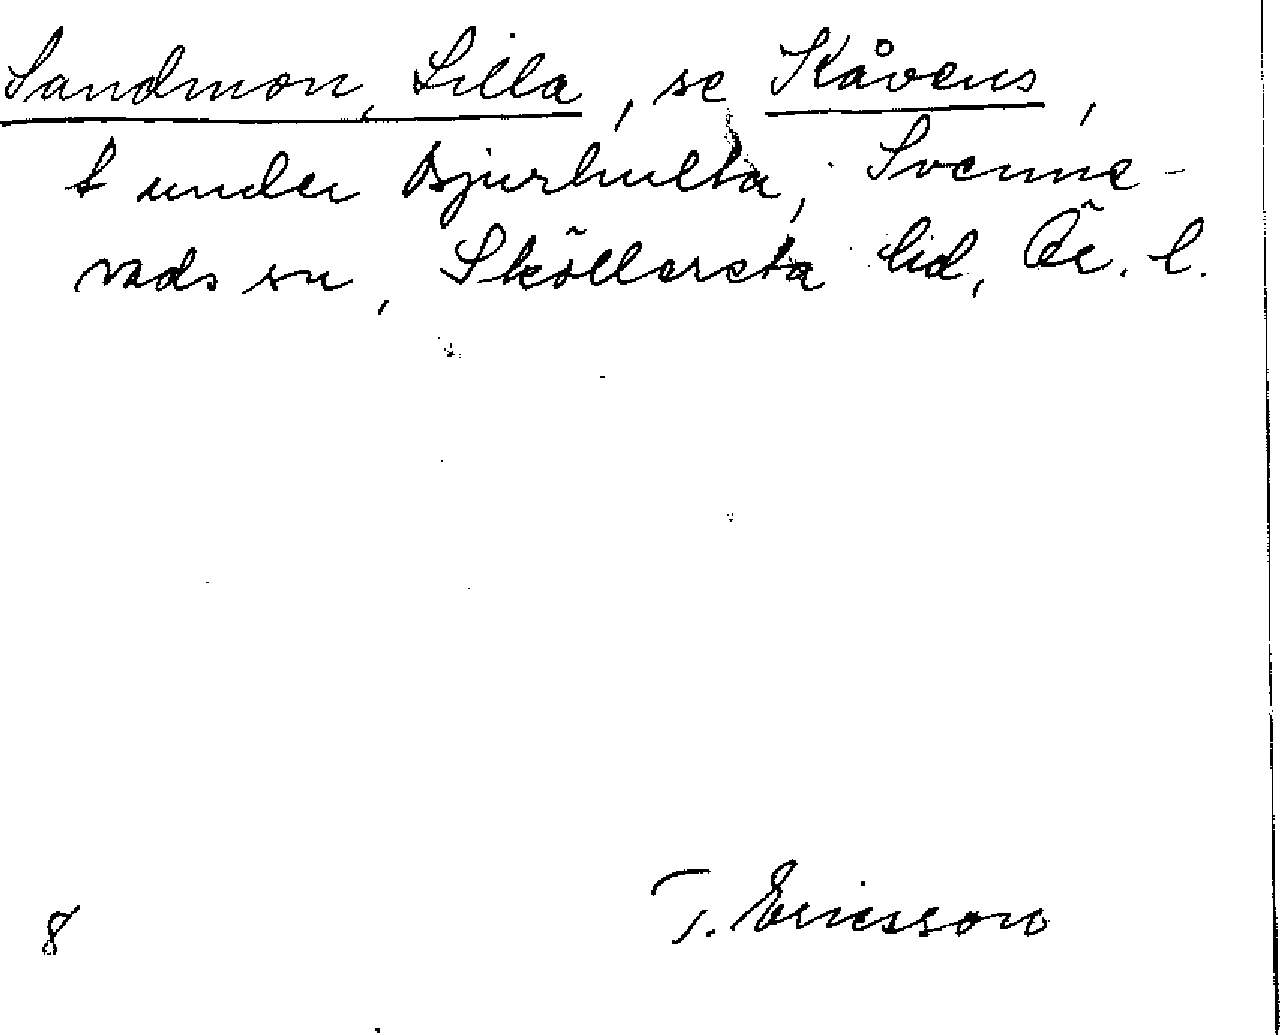 Sandmon, Lilla, se Kåvens,
t under Bjurhulta, Svenne-
vads sn, Sköllersta hd, Ör. l.
T. Ericsson
8